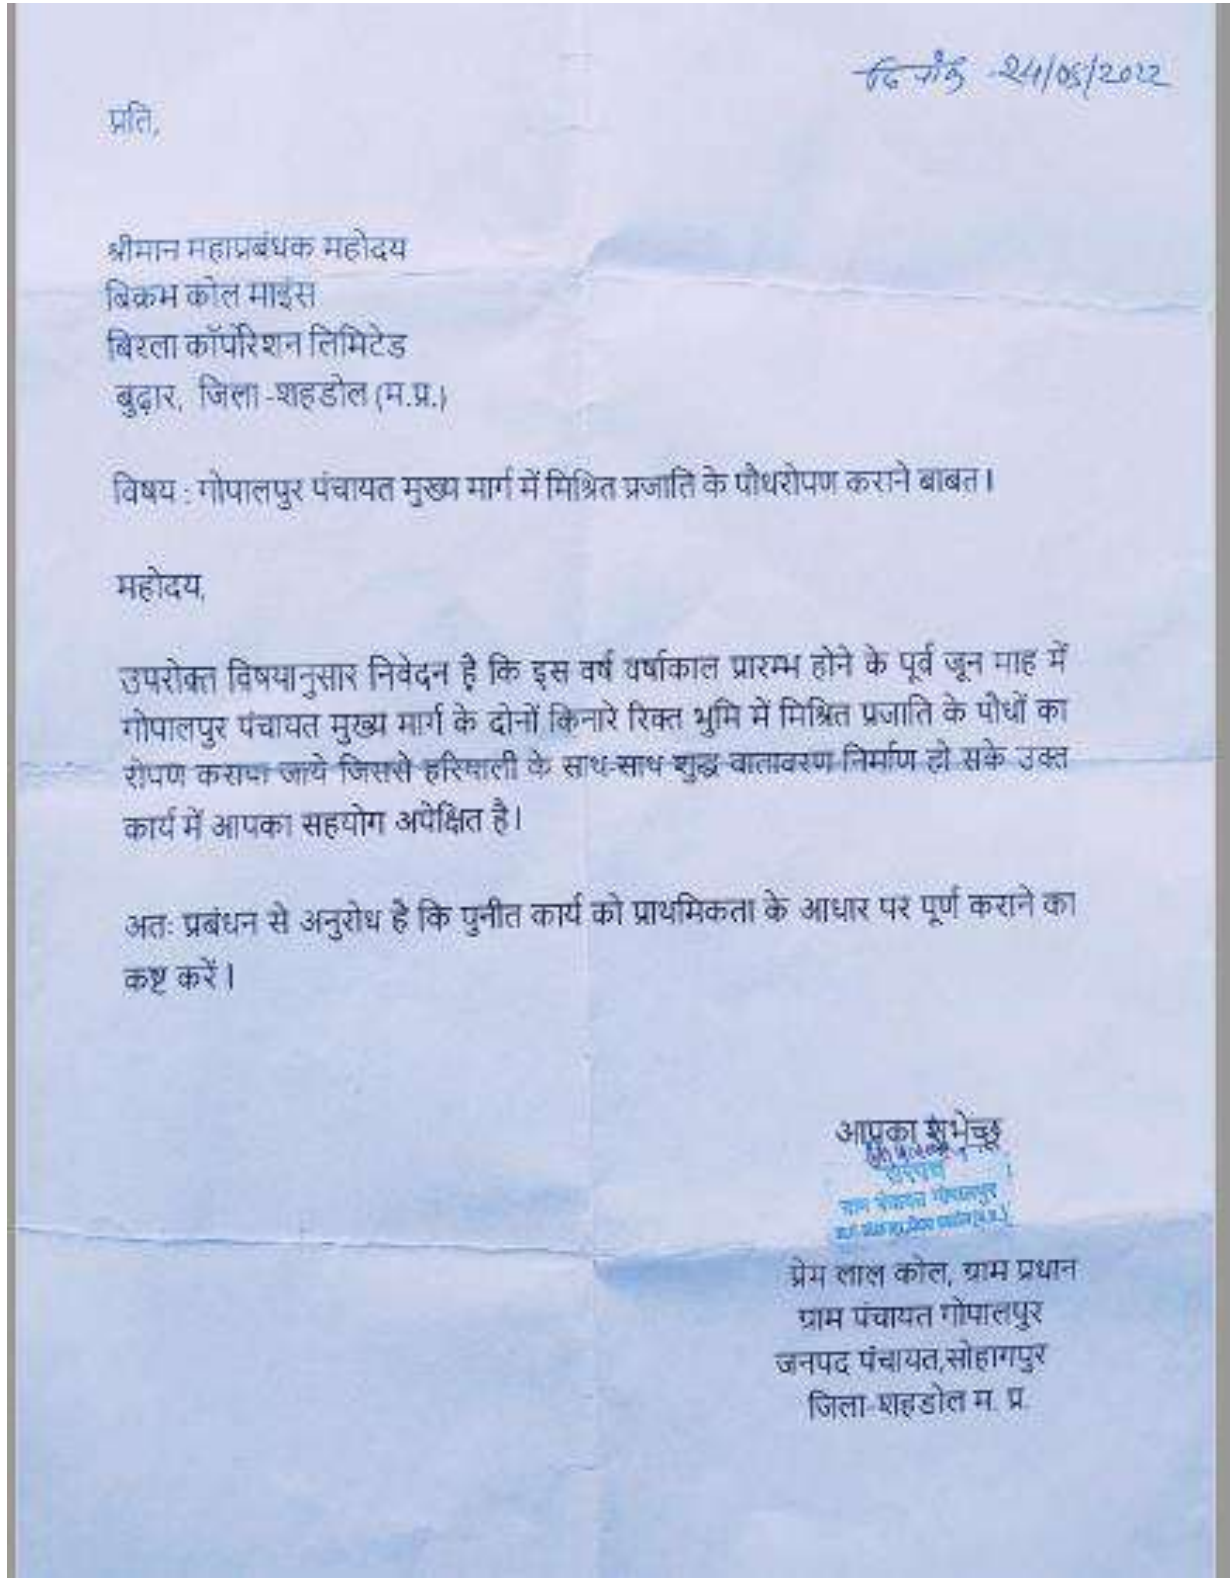 दिनांक 24/05/2022
प्रति,
श्रीमान महाप्रबंधक महोदय
बिक्रम कोल माइंस
बिरला कॉर्पोरेशन लिमिटेड
बुढ़ार, जिला-शहडोल (म.प्र.)
विषय : गोपालपुर पंचायत मुख्य मार्ग में मिश्रित प्रजाति के पौधरोपण कराने बाबत।
महोदय,
उपरोक्त विषयानुसार निवेदन है कि इस वर्ष वर्षाकाल प्रारम्भ होने के पूर्व जून माह में
गोपालपुर पंचायत मुख्य मार्ग के दोनों किनारे रिक्त भूमि में मिश्रित प्रजाति के पौधों का
रोपण कराया जाये जिससे हरियाली के साथ-साथ शुद्ध वातावरण निर्माण हो सके उक्त
कार्य में आपका सहयोग अपेक्षित है।
अतः प्रबंधन से अनुरोध है कि पुनीत कार्य को प्राथमिकता के आधार पर पूर्ण कराने का
कष्ट करें।
आपका शुभेच्छु
सरपंच
ग्राम पंचायत गोपालपुर
प्रेम लाल कोल, ग्राम प्रधान
ग्राम पंचायत गोपालपुर
जनपद पंचायत,सोहागपुर
जिला-शहडोल म. प्र.